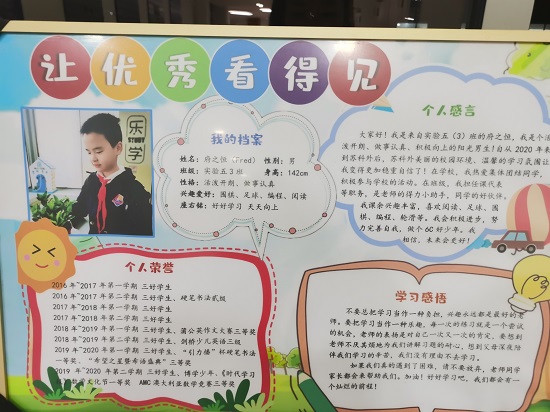 让优秀看得见
乐
学
我的档案
姓名：府之恒（Fred） 性别：男
班级：实验五3班 身高：142cm
性格：活泼开朗、做事认真
兴趣爱好：围棋、足球、编程、阅读
座右铭：好好学习 天天向上
个人感言
大家好！我是来自实验五（3）班的府之恒，我是个活
泼开朗、做事认真、积极向上的阳光男生！自从2020年来
到苏科外后，苏科外美丽的校园环境、温馨的学习氛围让
我变得更加稳重自信了！在学校，我热爱集体团结同学，
积极参与学校的活动。在班级，我担任课代表
等职务，是老师的得力小助手，同学的好伙伴。
我课余兴趣丰富，喜欢阅读、足球、围
棋、编程、轮滑等。我会积极进步，努
力完善自我，做个6C好少年。我
相信，未来会更好！
个人荣誉
2016年~2017年第一学期 三好学生
2016年~2017年第二学期 三好学生、硬笔书法贰级
2017年~2018年第一学期 三好学生
2017年~2018年第二学期 三好学生
2018年~2019年第一学期 三好学生、蒲公英作文大赛三等奖
2018年~2019年第二学期 三好学生、剑桥少儿英语三级
2019年~2020年第一学期 三好学生、“引力播”杯硬笔书法
一等奖、“希望之星整希语盛典”三等奖
2019年~2020年第二学期 三好学生、博学少年、《时代学习
数学文化节一等奖 AMC澳大利亚数学竞赛三等奖
学习感悟
不要总把学习当作一种负担，兴趣永远都是最好的老
师。要把学习当作一种乐趣，每一次的练习就是一个尝试
的机会，老师的表扬是对自己一次又一次的肯定。要想到
老师不厌其烦地为我们讲解习题的耐心，想到父母深夜陪
伴我们学习的辛苦，我们没有理由不去学习。
如果我们真的遇到了困难，请不要放弃，老师同学
家长都会来帮助我们，加油！好好学习吧，我们都会有一
个灿烂的前程！